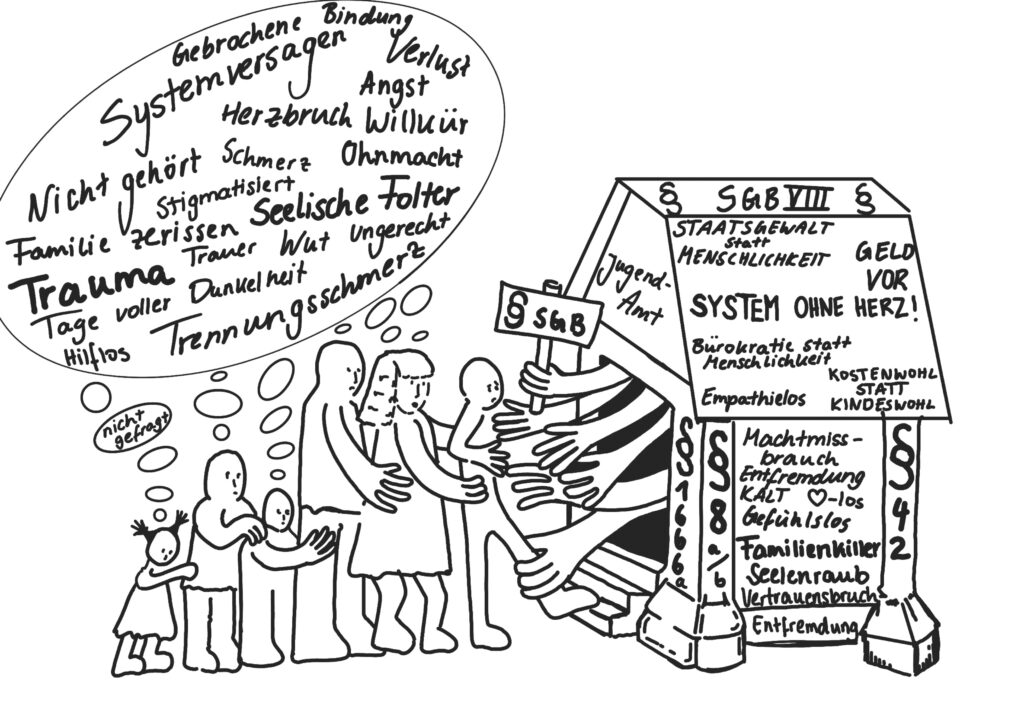 Gebrochene Bindung
Systemversagen
Verlust
Angst
Herzbruch Willkür
Nicht gehört
Schmerz
Ohnmacht
Stigmatisiert
Seelische Folter
Familie zerissen
Trauer
Wut
ungerecht
Trauma
Dunkelheit
Tage voller
Trennungsschmerz
Hilflos
nicht
gefragt
§ SGB
Jugend-
Amt
§ SGB VIII §
STAATSGEWALT
statt
MENSCHLICHKEIT
GELD
VOR
SYSTEM OHNE HERZ!
Bürokratie statt
Menschlichkeit
KOSTENWOHL
STATT
KINDESWOHL
Empathielos
§
1
6
6
6
a
§
8
a/b
Machtmiss-
brauch
Entfremdung
KALT ♡-los
Gefühlslos
Familienkiller
Seelenraub
Vertrauensbruch
Entfremdung
§
4
2